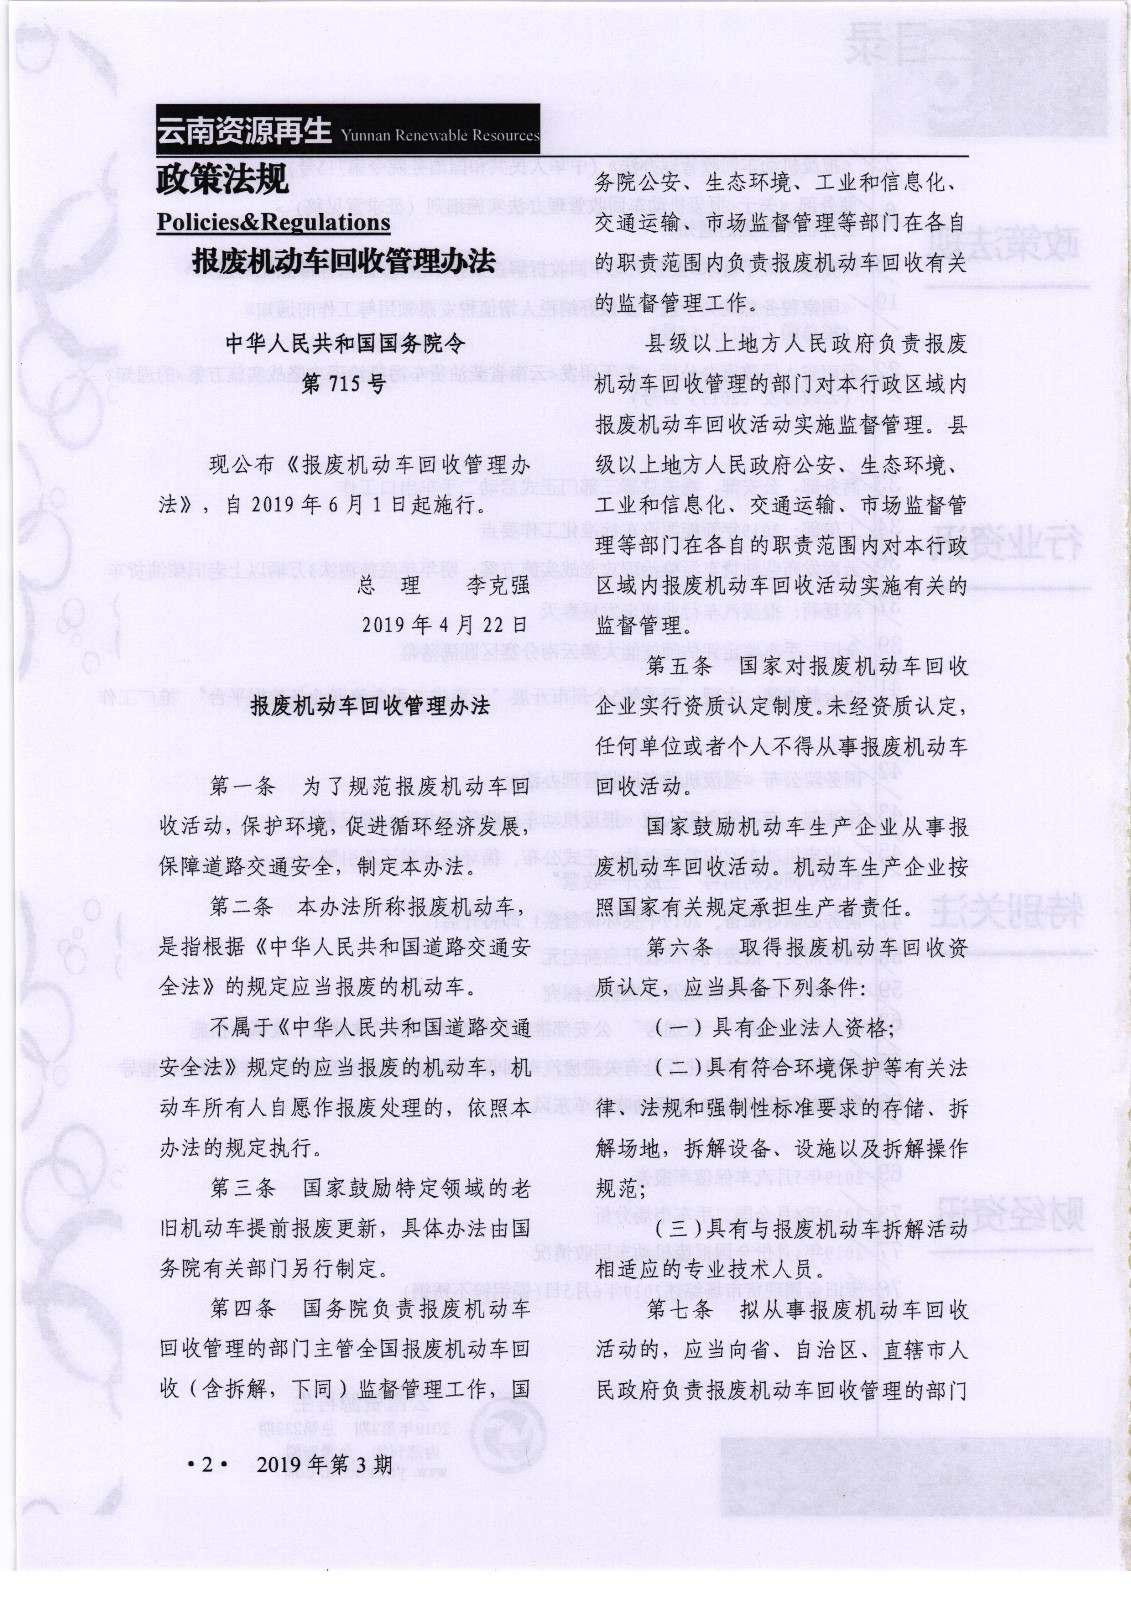 云南资源再生 Yunnan Renewable Resources
政策法规
Policies&Regulations
报废机动车回收管理办法
中华人民共和国国务院令
第 715 号
现公布《报废机动车回收管理办
法》，自 2019 年 6 月 1 日起施行。
总 理 李克强
2019 年 4 月 22 日
报废机动车回收管理办法
第一条 为了规范报废机动车回
收活动，保护环境，促进循环经济发展，
保障道路交通安全，制定本办法。
第二条 本办法所称报废机动车，
是指根据《中华人民共和国道路交通安
全法》的规定应当报废的机动车。
不属于《中华人民共和国道路交通
安全法》规定的应当报废的机动车，机
动车所有人自愿作报废处理的，依照本
办法的规定执行。
第三条 国家鼓励特定领域的老
旧机动车提前报废更新，具体办法由国
务院有关部门另行制定。
第四条 国务院负责报废机动车
回收管理的部门主管全国报废机动车回
收（含拆解，下同）监督管理工作，国
务院公安、生态环境、工业和信息化、
交通运输、市场监督管理等部门在各自
的职责范围内负责报废机动车回收有关
的监督管理工作。
县级以上地方人民政府负责报废
机动车回收管理的部门对本行政区域内
报废机动车回收活动实施监督管理。县
级以上地方人民政府公安、生态环境、
工业和信息化、交通运输、市场监督管
理等部门在各自的职责范围内对本行政
区域内报废机动车回收活动实施有关的
监督管理。
第五条 国家对报废机动车回收
企业实行资质认定制度。未经资质认定，
任何单位或者个人不得从事报废机动车
回收活动。
国家鼓励机动车生产企业从事报
废机动车回收活动。机动车生产企业按
照国家有关规定承担生产者责任。
第六条 取得报废机动车回收资
质认定，应当具备下列条件：
（一）具有企业法人资格；
（二）具有符合环境保护等有关法
律、法规和强制性标准要求的存储、拆
解场地，拆解设备、设施以及拆解操作
规范；
（三）具有与报废机动车拆解活动
相适应的专业技术人员。
第七条 拟从事报废机动车回收
活动的，应当向省、自治区、直辖市人
民政府负责报废机动车回收管理的部门
·2· 2019 年第 3 期